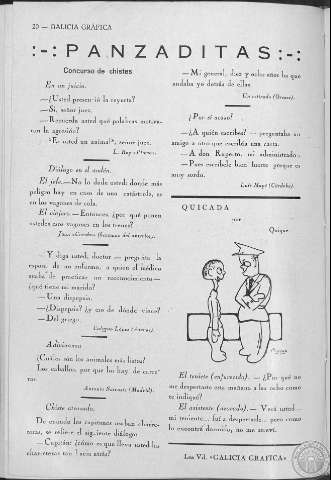 20 — GALICIA GRÁFICA
:-: PANZADITAS :-:
Concurso de chistes
En un juicio.
—¿Usted presenció la reyerta?
—Sí, señor juez.
—Recuerda usted qué palabras
ron la agresión?
"Es usted un animal", señor juez.
L.
Diálogo en el andén.
El jefe.—No lo dude usted: donde más
peligro hay en caso de una catástrofe, es
en los vagones de cola.
El viajero.—Entonces, ¿por qué ponen
ustedes esos vagones en los trenes?
—Y diga usted, doctor — pregunta la
esposa de un enfermo, a quien el médico
acaba de practicar un reconocimiento—
¿qué tiene mi marido?
—Una dispepsia.
—¿Dispepsia? ¿y eso de dónde viene?
—Del griego.
López
Adivinanza
¿Cuáles son los animales más listos?
Los caballos, por que los hay de carre-
ras.
Antonio (Madrid).
Chiste atrasado.
De cuando los capitanes usaban charre-
teras, se refiere el siguiente diálogo:
—Capitán ¿cómo es que lleva usted las
charreteras tan hacia atrás?
—Mi general, diez y ocho años ha que
andaba yo detrás de ellas
Un retirado (Orense).
¿Por si acaso?
—¿A quién escribes? — preguntaba un
amigo a otro que escribía una carta.
—A don Ruperto, mi administrador.
—Pues escríbele bien fuerte porque es
muy sordo.
Luis Mayo (Córdoba).
QUICADA
por
Quique
El teniete (enfurecido). — ¿Por qué no
me despertaste esta mañana a las ocho como
te indiqué?
El asistente (azorado). — Verá usted...
mi teniente... fuí a despertarle... pero como
lo encontré dormido, no me atreví.
Lea Vd. «GALICIA GRAFICA»